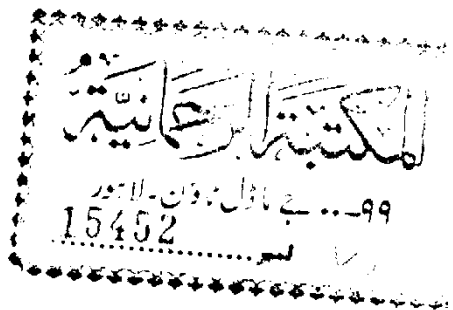 المكتبة الرحمانية
۹۹۔۔۔ جے ماڈل ٹاؤن ۔ لاہور
15452
نمبر